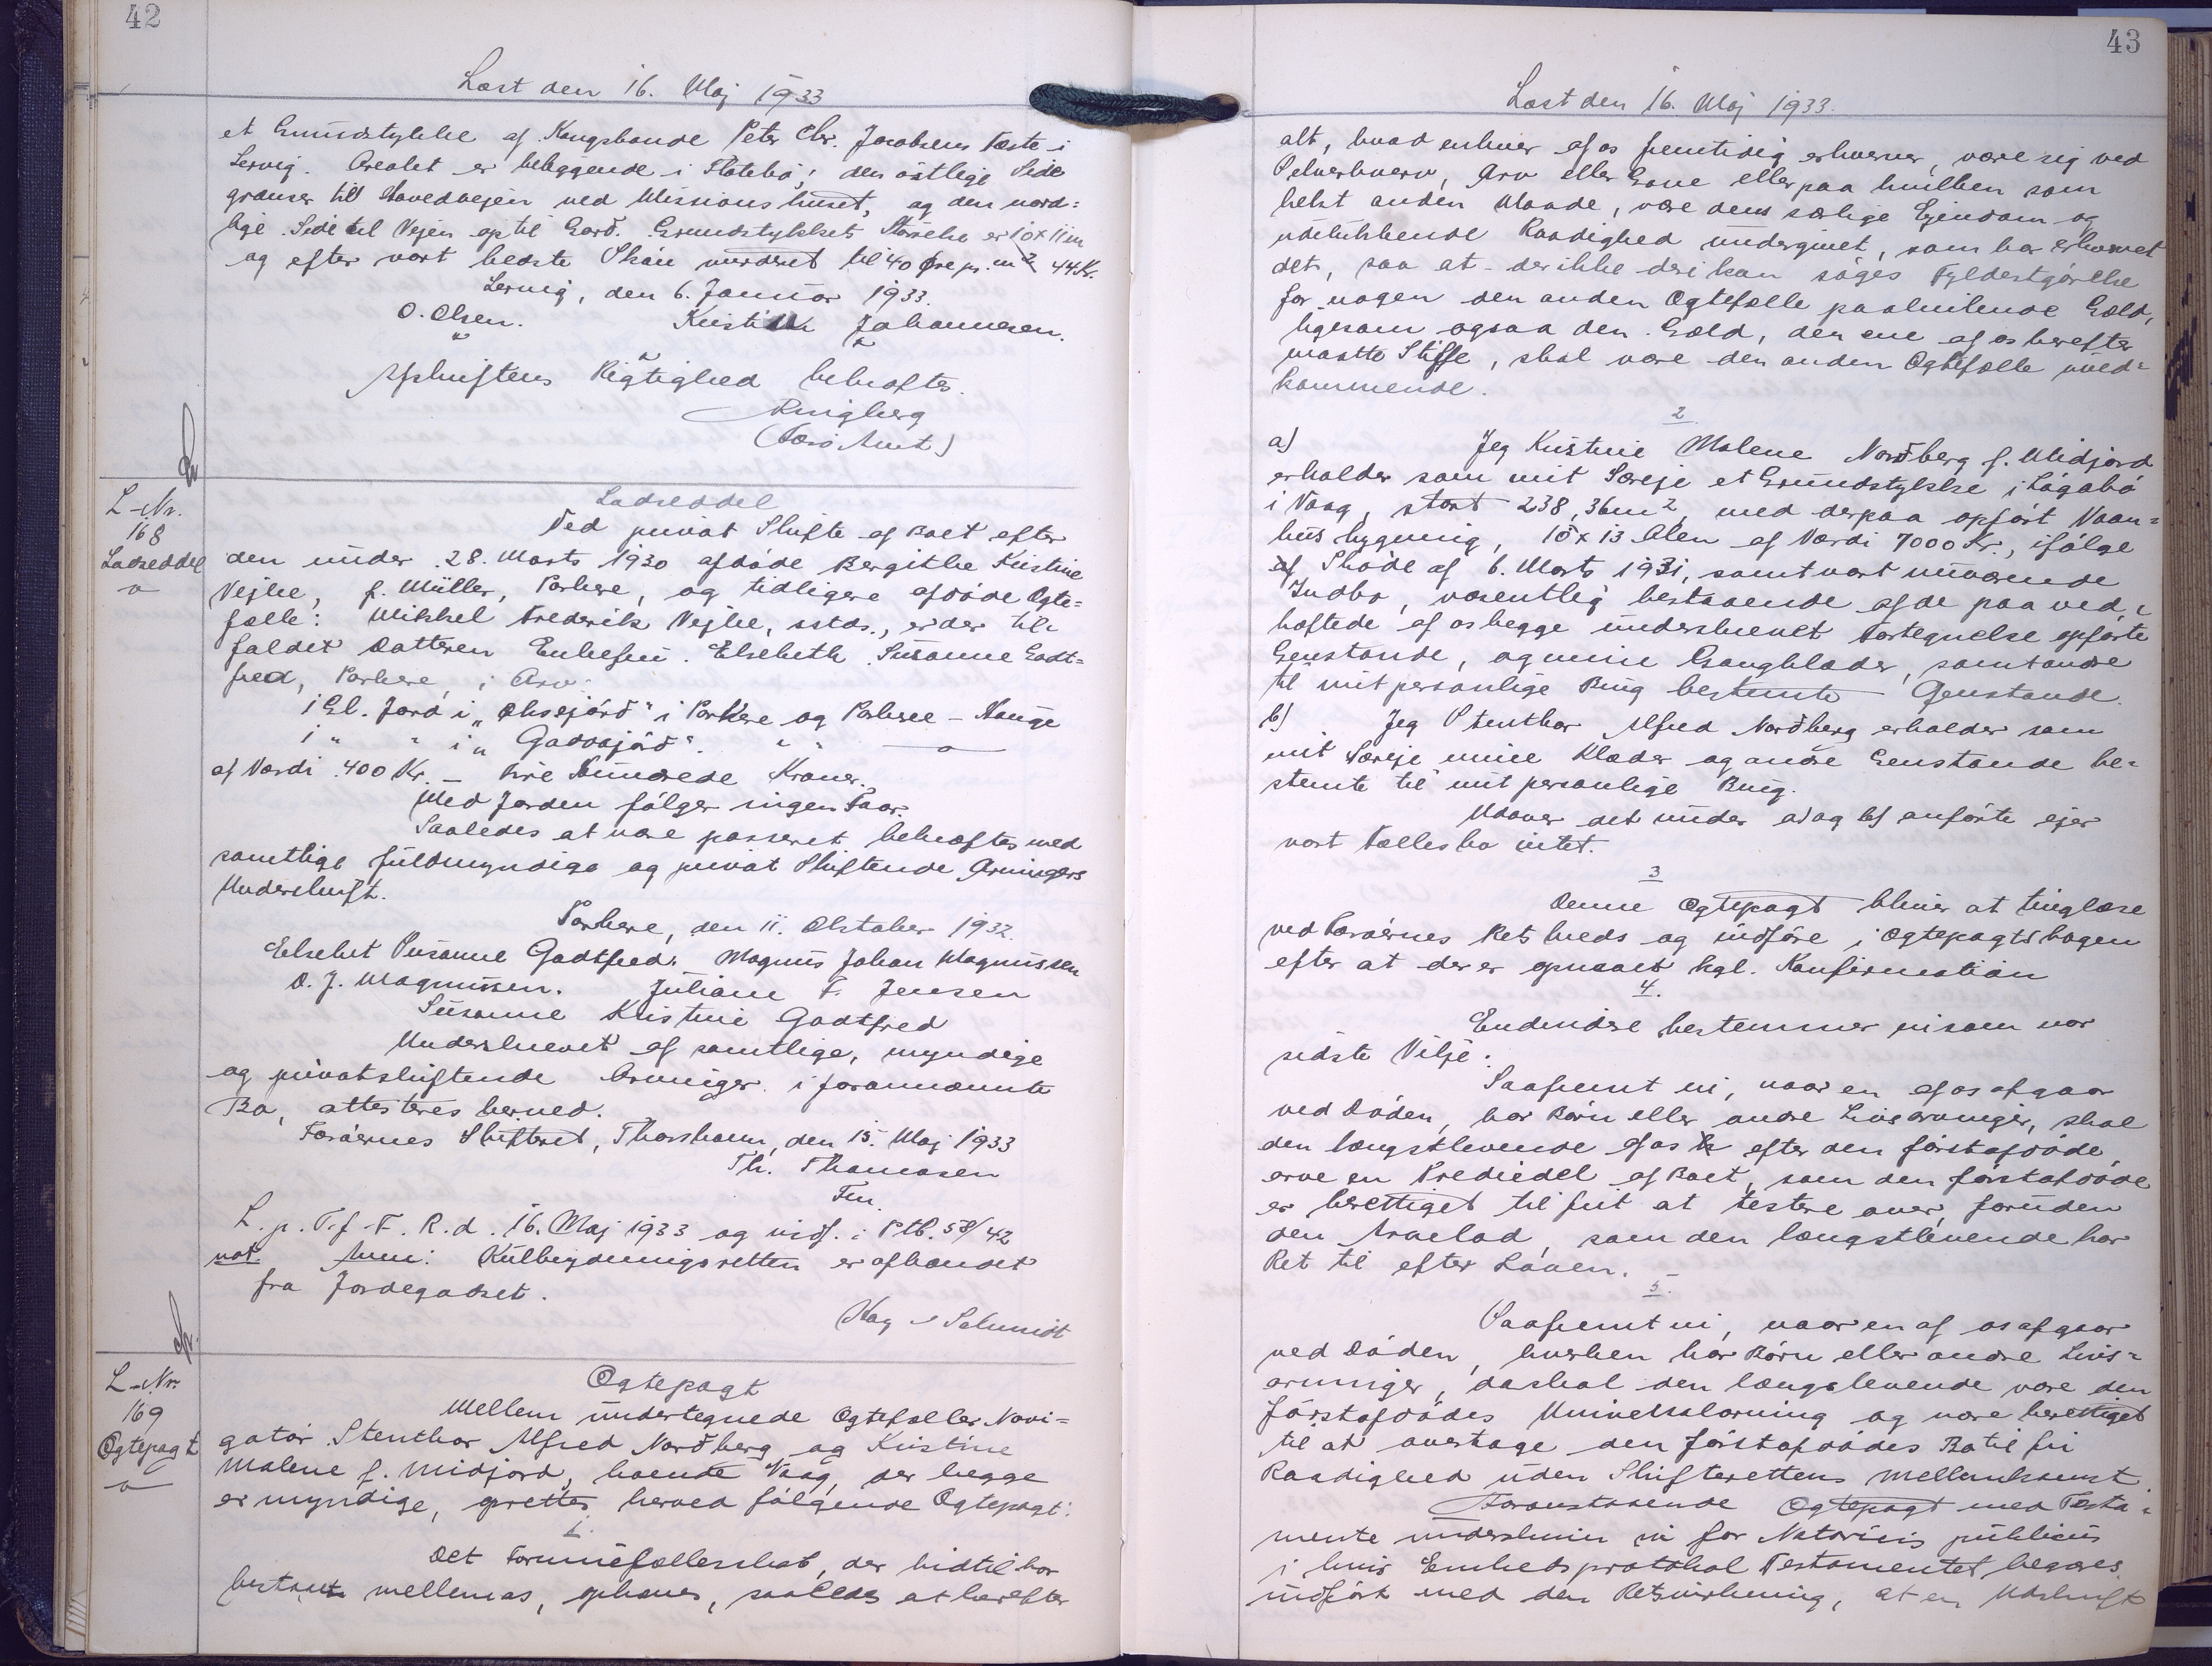 42
Læst den 16. Maj 1933
et Grundstykke af Kongsbonde Peter Chr. Jacobsens Fæste i
Lervig. Arealet er beliggende i Flatebø; den østlige Side
grænser til Hovedvejen ved Missionshuset, og den nord=
lige Side til Vejen op til Gerð. Grundstykkets Størrelse er 10 x 11 m
og efter vort bedste Skøn vurderet til 40 Øre pr. m² 44 Kr.
Lervig, den 6. Januar 1933.
O. Olsen. Kristian Johannesen.
Afskriftens Rigtighed bekræftes.
Ringberg
(Færø Amt)
L-Nr.
168
Ladseddel
Ladseddel
Ved privat Skifte af Boet efter
den under 28. Marts 1930 afdøde Bergithe Kristine
Vejhe, f. Müller, Porkere, og tidligere afdøde Ægte=
fælle: Mikkel Frederik Vejhe, sstds., er der til=
faldet Datteren Enkefru Elsebeth Susanne Godt=
fred, Porkere, i Arv:
1 Gl. Jord i "Oksejørd" i Porkere og Porkere-Hauge
1 " " i " Gaddajørd". " "
af Værdi 400 Kr. - Fire Hundrede Kroner.
Med Jorden følger ingen Faar.
Saaledes at være passeret bekræftes med
samtlige fuldmyndige og privat Skiftende Arvingers
Underskrift.
Porkere, den 11. Oktober 1932.
Elsebet Susanne Godtfred. Magnus Johan Magnussen
D. J. Magnussen. Juliane F. Jensen
Susanne Kristine Godtfred
Underskrevet af samtlige, myndige
og privatskiftende Arvinger i forannævnte
Bo, attesteres herved.
Færøernes Skifteret, Thorshavn, den 15. Maj 1933
Th. Thomasen
Fm.
L. p. T. f. F. R. d. 16. Maj 1933 og indf. i Ptb. 58/42
not. Anm: Kulbrydningsretten er afhændet
fra Jordegodset.
Schmidt
L-Nr.
169
Ægtepagt
Ægtepagt
Mellem undertegnede Ægtefæller Navi=
gatør Stenthor Alfred Norðberg og Kristine
Malene f. Midjord, boende Vaag, der begge
er myndige, oprettes herved følgende Ægtepagt:
1.
Det Formuefællesskab, der hidtil har
bestaaet mellem os, ophæves, saaledes at herefter
43
Læst den 16. Maj 1933.
alt, hvad enhver af os fremtidig erhverver, være sig ved
Selverhverv, Arv eller Gave eller paa hvilken som
helst anden Maade, være dens særlige Ejendom og
udelukkende Raadighed undergivet, som har erhvervet
det, saa at der ikke deri kan søges Fyldestgørelse
for nogen den anden Ægtefælle paahvilende Gæld,
ligesom ogsaa den Gæld, den ene af os herefter
maatte Stifte, skal være den anden Ægtefælle uved=
kommende.
2
a) Jeg Kristine Malene Norðberg f. Midjord
erholder som mit Særeje et Grundstykke i Lágabø
i Vaag, stort 238,36 m², med derpaa opført Vaan=
husbygning, 15 x 13 Alen af Værdi 7000 Kr., ifølge
Skøde af 6. Marts 1931, samt vort nuværende
Indbo, væsentlig bestaaende af de paa ved=
hæftede af os begge underskrevet Fortegnelse opførte
Genstande, og mine Gangklæder, samt andre
til mit personlige Brug bestemte Genstande.
b) Jeg Stenthor Alfred Norðberg erholder som
mit Særeje mine Klæder og andre Genstande be=
stemte til mit personlige Brug.
Udover det under a) og b) anførte ejer
vort Fællesbo intet.
3
Denne Ægtepagt bliver at tinglæse
ved Færøernes Ret kreds og indføre i Ægtepagtsbogen
efter at der er opnaaet kgl. Konfirmation
4.
Endvidere bestemmer vi som vor
sidste Vilje:
Saafremt vi, naar en af os afgaar
ved Døden, har Børn eller andre Livsarvinger, skal
den længstlevende af os efter den førstafdøde
arve en Trediedel af Boet, som den førstafdøde
er berettiget til frit at testere over, foruden
den Arvelod, som den længstlevende har
Ret til efter Loven.
5.
Saafremt vi, naar en af os afgaar
ved Døden, hverken har Børn eller andre Livs=
arvinger, da skal den længslevende være den
førstafdødes Universalarving og være berettiget
til at overtage den førstafdødes Bo til fri
Raadighed uden Skifterettens Mellemkomst.
Foranstaaende Ægtepagt med Testa=
mente underskriver vi for Notarius publicus
i hvis Embedsprotokol Testamentet begæres
indført med den Retsvirkning, at en Udskrift